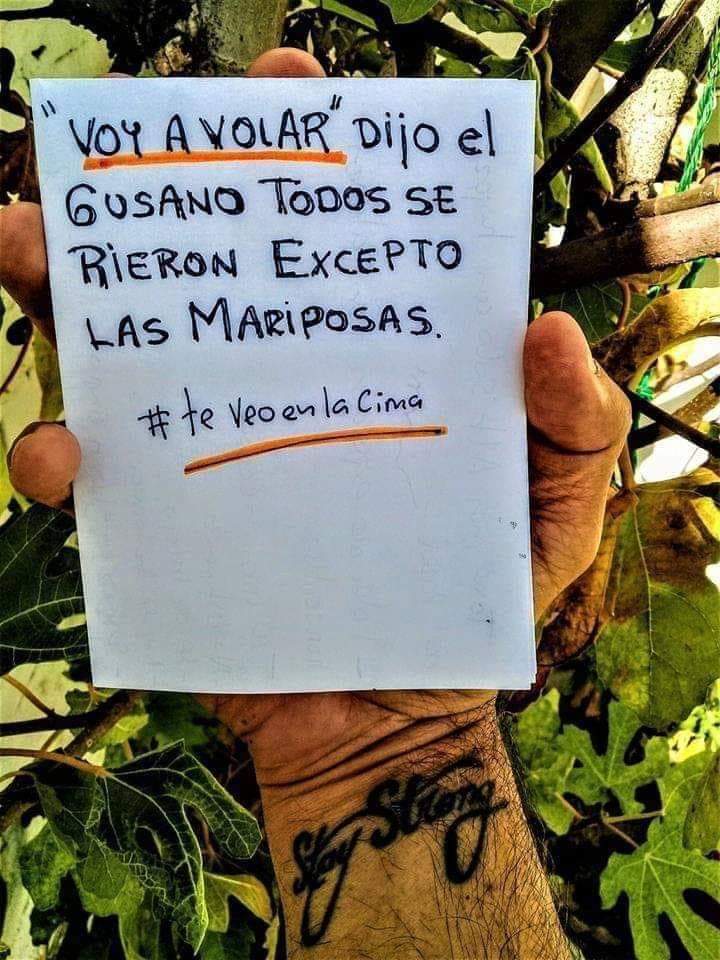 "VOY A VOLAR" Dijo el
GUSANO TODOS SE
RiERON EXCEPTO
LAS MARiPOSAS.
# te veo en la Cima
Stay Strong